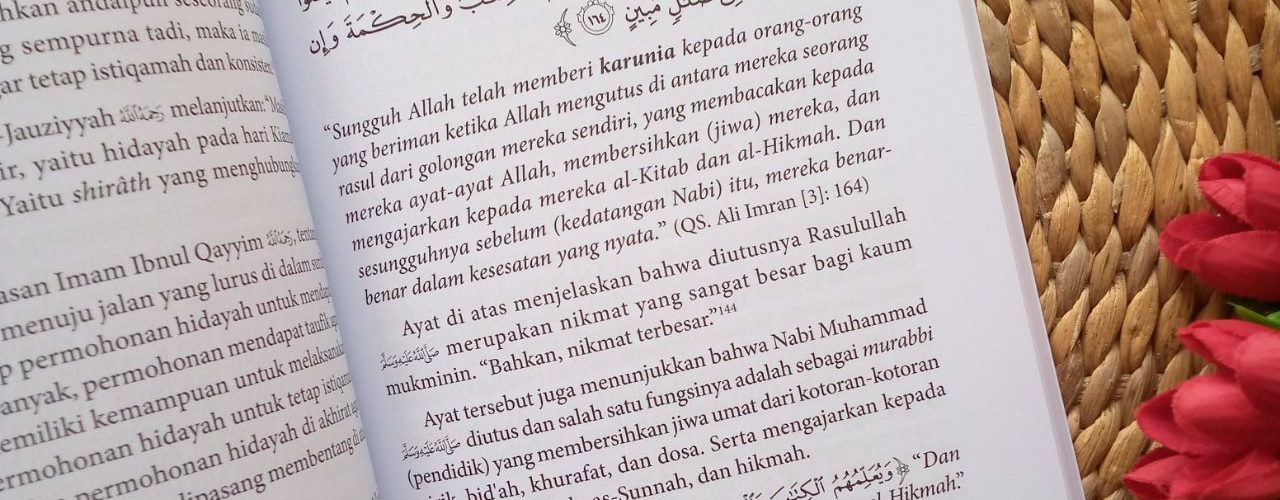 sempurna tadi, maka ia
tetap istiqamah dan
-Jauziyyah رَحِمَهُ اللهُ melanjutkan:
yaitu hidayah pada hari
Yaitu shirâth yang
Imam Ibnul Qayyim رَحِمَهُ اللهُ,
menuju jalan yang lurus di dalam
permohonan hidayah untuk
permohonan mendapat taufik
kemampuan untuk
hidayah untuk tetap
permohonan hidayah di akhirat
dipasang membentang di
وَٱلْحِكْمَةَ وَإِن
مُّبِينٍ ١٦٤
“Sungguh Allah telah memberi karunia kepada orang-orang
yang beriman ketika Allah mengutus di antara mereka seorang
rasul dari golongan mereka sendiri, yang membacakan kepada
mereka ayat-ayat Allah, membersihkan (jiwa) mereka, dan
mengajarkan kepada mereka al-Kitab dan al-Hikmah. Dan
sesungguhnya sebelum (kedatangan Nabi) itu, mereka benar-
benar dalam kesesatan yang nyata.” (QS. Ali Imran [3]: 164)
Ayat di atas menjelaskan bahwa diutusnya Rasulullah
صَلَّى اللهُ عَلَيْهِ وَسَلَّمَ merupakan nikmat yang sangat besar bagi kaum
mukminin. “Bahkan, nikmat terbesar.”144
Ayat tersebut juga menunjukkan bahwa Nabi Muhammad
صَلَّى اللهُ عَلَيْهِ وَسَلَّمَ diutus dan salah satu fungsinya adalah sebagai murabbi
(pendidik) yang membersihkan jiwa umat dari kotoran-kotoran
bid'ah, khurafat, dan dosa. Serta mengajarkan kepada
as-Sunnah, dan hikmah.
وَيُعَلِّمُهُمُ ٱلْكِتَٰبَ “Dan
Hikmah.”